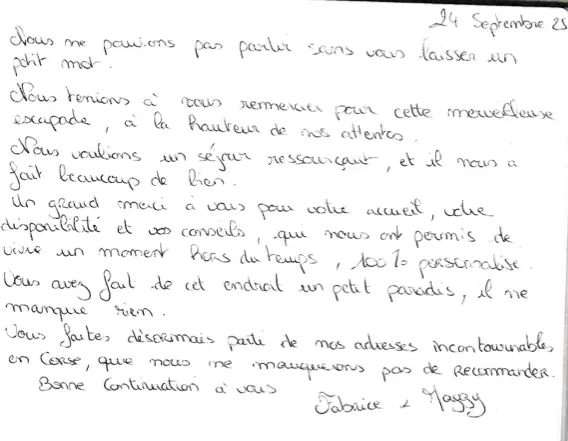 24 Septembre 25
Nous ne pouvions pas partir sans vous laisser un
petit mot.
Nous tenions à vous remercier pour cette merveilleuse
escapade, à la hauteur de nos attentes.
Nous voulions un séjour ressourçant, et il nous a
fait beaucoup de bien.
Un grand merci à vous pour votre accueil, votre
disponibilité et vos conseils, qui nous ont permis de
vivre un moment hors du temps, 100% personnalisé.
Vous avez fait de cet endroit un petit paradis, il ne
manque rien.
Vous faites désormais partie de nos adresses incontournables
en Corse, que nous ne manquerons pas de recommander.
Bonne Continuation à vous
Fabrice &